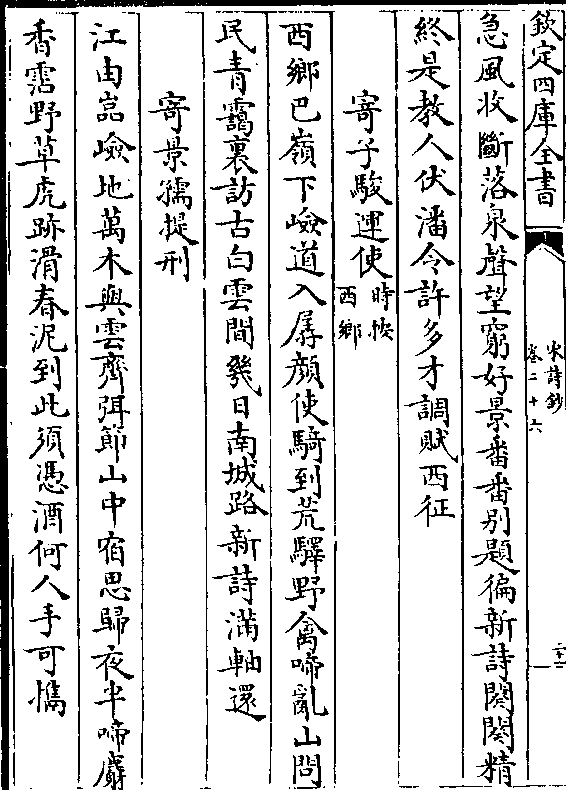 欽定四庫全書
宋詩鈔
卷二十六
急風收斷落泉聲望窮好景番番别題徧新詩闋闋精
終是教人伏潘令許多才調賦西征
寄子駿運使
時按
西鄉
西鄉巴嶺下嶮道入孱顔使騎到荒驛野禽啼亂山問
民青靄裏訪古白雲間幾日南城路新詩滿軸還
寄景孺提刑
江由嵓嶮地萬木與雲齊弭節山中宿思歸夜半啼麝
香霑野草虎跡滑春泥到此須憑酒何人手可㩦